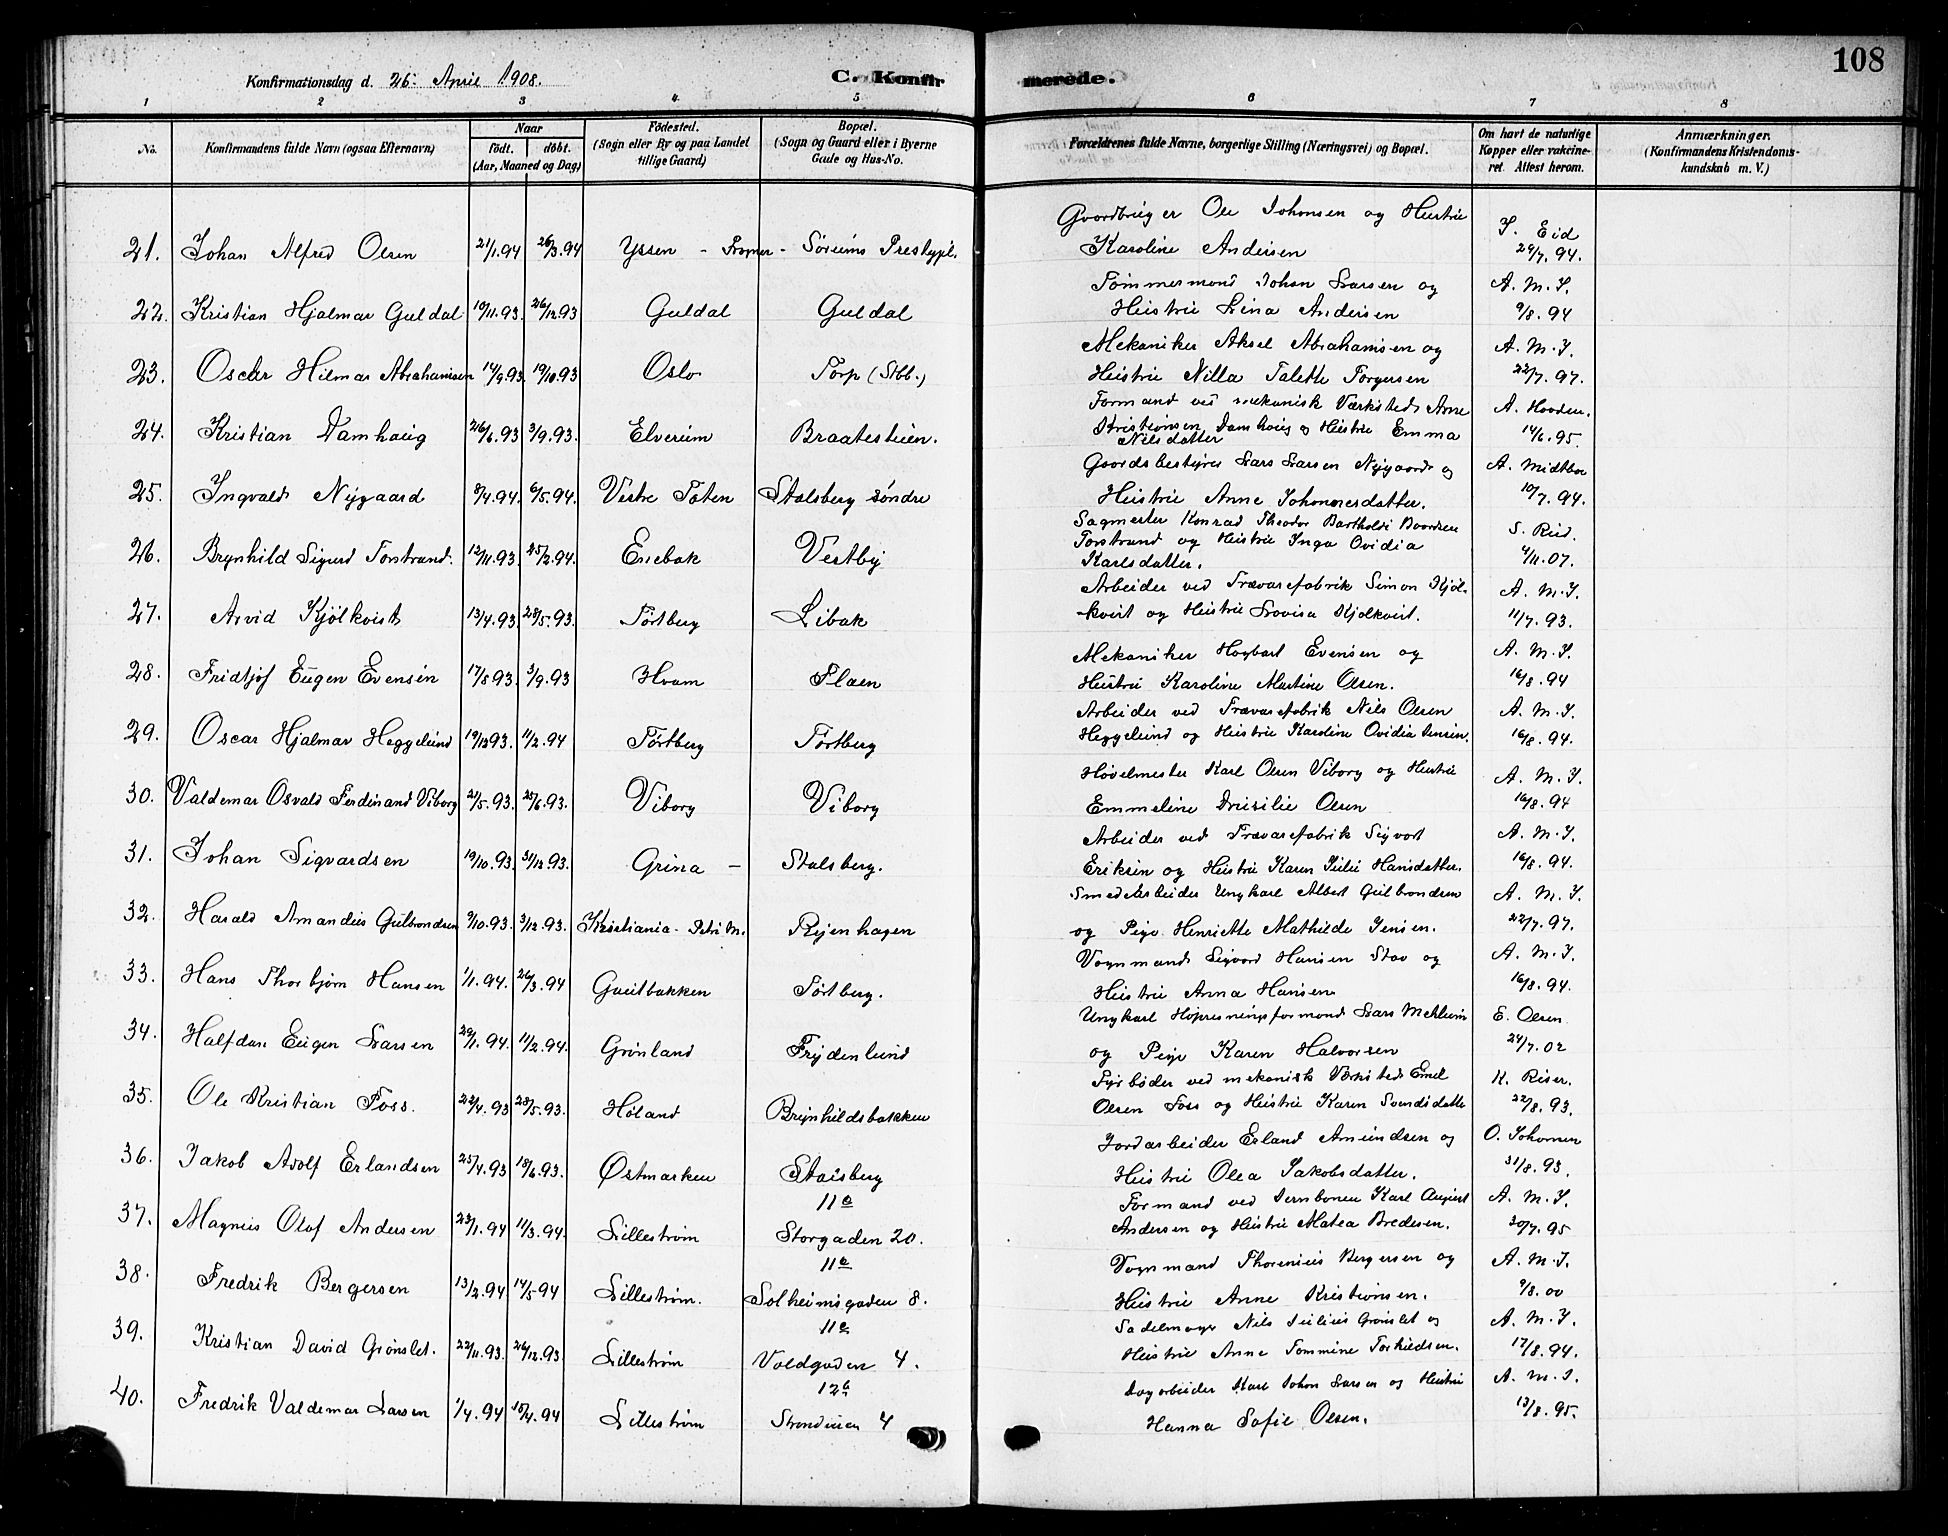 108
Konfirmationsdag d. 26. April 1908.
C. Konfir merede.
1 2 3 4 5 6 7 8
No. Konfirmandens fulde Navn (ogsaa Efternavn) Naar født. døbt. (Aar, Maaned og Dag) Fødested. (Sogn eller By og paa Landet tillige Gaard) Bopæl. (Sogn og Gaard eller i Byerne Gade og Hus-No. Forældrenes fulde Navne, borgerlige Stilling (Næringsvei) og Bopæl. Om havt de naturlige Kopper eller vakcineret. Attest herom. Anmærkninger. (Konfirmandens Kristendomskundskab m. V.)
21. Johan Alfred Olsen 21/1.94 26/3.94 Yssen - Fro­gner - Sørums Prestegjl. Gaardbruger Ole Johansen og Hustru Karoline Andersen
22. Kristian Hjalmar Guldal 10/11.93. 26/12.93 Guldal Guldal Tømmermand Johan Larsen og Hustru Lina Andersen A. M. J. 9/8.94
23. Oscar Hilmar Abrahamsen 14/9.93. 19/10.93 Oslo Torp (Stbb.) Mekaniker Aksel Abrahamsen og Hustru Nilla Talette Torgersen A. M. J. 22/7.97.
24. Kristian Damhaug 26/6.93 3/9.93. Elverum Braatestuen. Formand ved mekanisk Værksted Arne Kristiansen Damhaug og Hustru Emma Nilsdatter 14/6.95.
25. Ingvald Nygaard 8/4.94. 6/5.94. Vestre Toten Stalsberg søndre Gaardsbestyrer Lars Larsen Nygaard og Hustru Anne Johannesdatter. A. Midtboe 10/7.94.
26. Brynhild Sigurd Torstrand. 12/11.93. 25/2.94. Enebak Vestby Sagmester Konrad Theodor Bartholdi Torstrand og Hustru Inga Ovidia Karlsdatter. 4/11.07.
27. Arvid Kjølkvist 13/4.93 28/5.93. Tørtberg Libak Arbeider ved Trævarefabrik Simon Kjøl-kvist og Hustru Lovisa Kjølkvist. A. M. J. 11/7.93.
28. Fridtjof Eugen Evensen 17/5.93. 3/9.93 Hvam Flaen Mekaniker Hagbart Evensen og Hustru Karoline Martine Olsen. A. M. J. 16/8.94
29. Oscar Hjalmar Heggelund 19/12.93. 11/2.94 Tørtberg Tørtberg Arbeider ved Trævarefabrik Nils Olsen Heggelund og Hustru Karoline Ovidia Jensen. A. M. J. 16/8.94.
30. Valdemar Osvald Ferdinand Viborg 21/5.93. 25/6.93. Viborg Viborg Høvelmester Karl Olsen Viborg og Hustru Emmeline Drusilie Olsen A. M. J. 16/8.94
31. Johan Sigvardsen 19/10.93. 31/12.93. Grina - Stalsberg. Arbeider ved Trævarefabrik Sigvart Eriksen og Hustru Karen Julie Hansdatter. A. M. J. 16/8.94.
32. Harald Amandus Gulbrandsen 9/10.93. 3/12.93. Kristiania - Petri M. Ryenhagen Smedearbeider Ungkarl Albert Gulbrandsen og Pige Henriette Mathilde Jensen. A. M. J. 22/7.97.
33. Hans Thorbjørn Hansen 1/1.94. 26/3.94 Gautbakken Tørtberg. Vognmand Sigvard Hansen Stav og Hustru Anna Hansen A. M. J. 16/8.94.
34. Halfdan Eugen Larsen 29/1.94. 11/2.94. Grønland Frydenlund Ungkarl Høpresningsformand Lars Mehlum og Pige Karen Halvorsen E. Olsen 24/7.02
35. Ole Kristian Foss. 22/4.93 28/5.93. Høland Brynhildsbakken Fyrbøder ved mekanisk Værksted Emil Olsen Foss og Hustru Karen Svendsdatter K. Riser. 22/8.93.
36. Jakob Adolf Erlandsen 25/4.93 18/6.93. Østmarken Stalsberg Jordarbeider Erland Amundsen og Hustru Olea Jakobsdatter. O. Johansen 31/8.93.
37. Magnus Olaf Andersen 23/1.94. 11/3.94. Lillestrøm 11a Storgaden 20. Formand ved Jernbanen Karl August Andersen og Hustru Matea Bredesen. A. M. J. 30/7.95
38. Fredrik Bergersen 13/2.94 14/5.94 Lillestrøm. 11a Solheimsgaden 8. Vognmand Thorenius Bergersen og Hustru Anne Kristiansen. A. M. J. 9/8.00
39. Kristian David Grønslet. 22/11.93. 26/12.93. Lillestrøm 11a Voldgaden 4. Sadelmager Nils Julius Grønslet og Hustru Anne Tommine Torkildsen. A. M. J. 17/8.94.
40. Fredrik Valdemar Larsen 1/4.94 15/4.94 Lillestrøm 12a Strandveien 4 Dagarbeider Karl Johan Larsen og Hustru Hanna Sofie Olsen. A. M. J. 13/8.95.